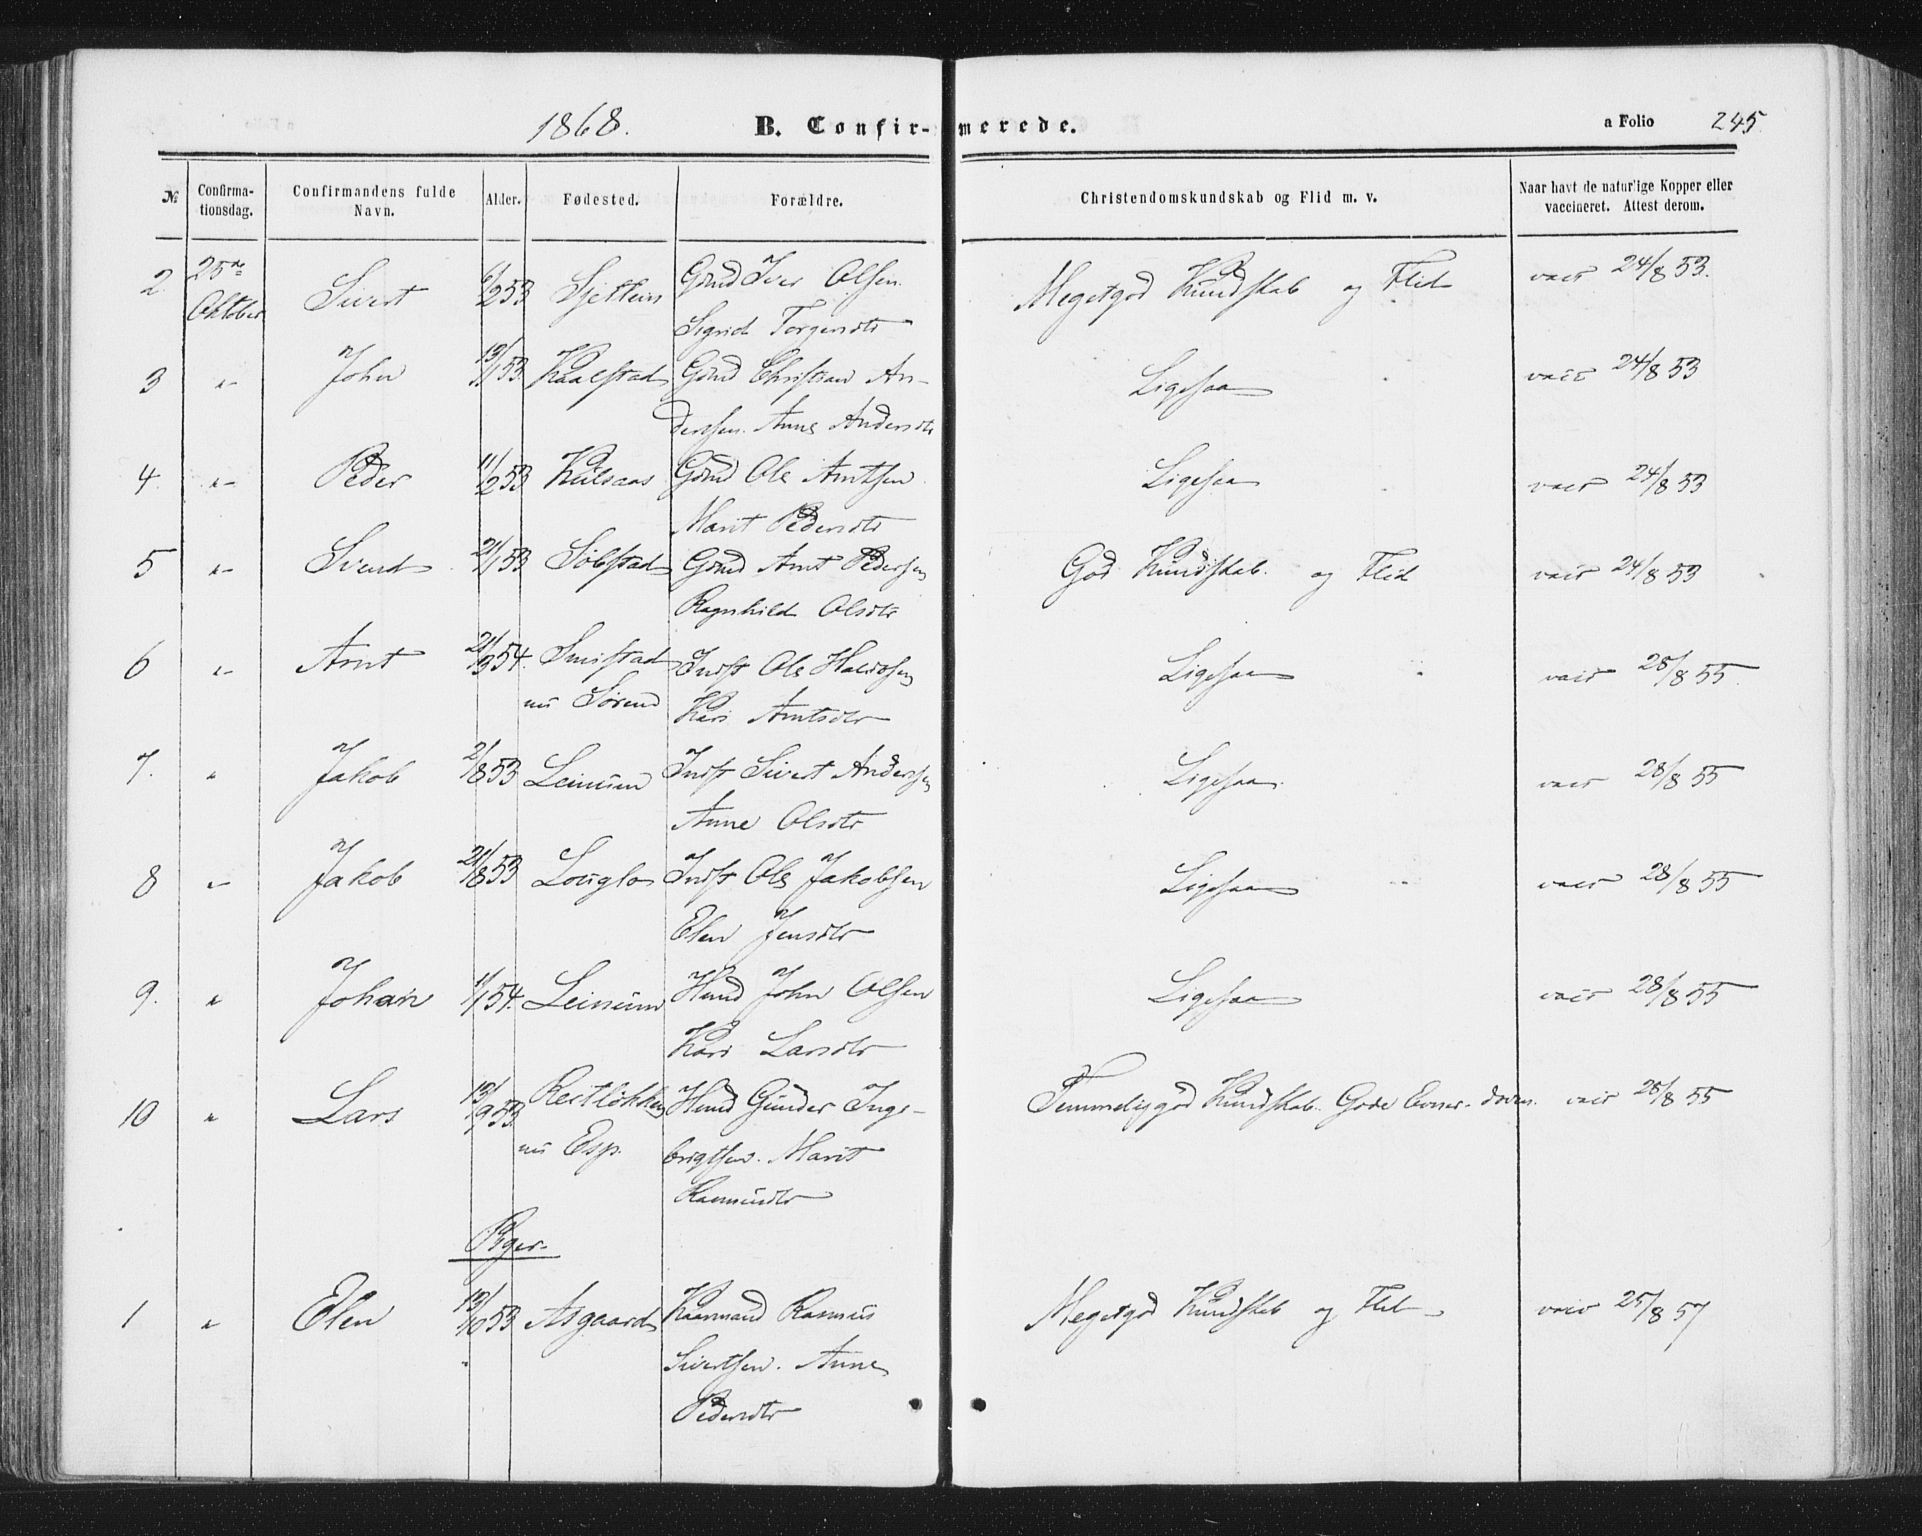 1868. B. Confirmerede. a Folio 245.
№ Confirmationsdag. Confirmandens fulde Navn. Alder. Fødested. Forældre. Christendomskundskab og Flid m. v. Naar havt de naturlige Kopper eller vaccineret. Attest derom.
2 25de Oktober Sivert 6/2 53 Sjetlein Gmd Iver Olsen. Megetgod Kundskab og Flid vacc 24/8 53.
Sigrid Torgersdtr
3 „ John 13/1 53 Kaalstad Gmd Christian An- Ligesaa vacc 24/8 53
dersen. Anne Andersdtr
4. „ Peder 11/2 53 Kulsaas Gmd Ole Arntsen Ligesaa vacc 24/8 53
Marit Pedersdtr
5 „ Sivert 21/1 53 Solstad Gmd Arnt Pedersen God Kundskab og Flid vacc 24/8 53
Ragnhild Olsdtr
6 „ Arnt 21/3 54. Smistad Indst Ole Ligesaa vacc 28/8 55.
nu Kari Arntsdtr
7. „ Jakob 2/8 53 Leinum Indst Sivert Andersen Ligesaa. vacc 28/8 55
Anne Olsdtr
8 „ Jakob 21/8 53 Indst Ole Jakobsen Ligesaa vacc 28/8 55
Elen Jensdtr
9. „ Johan 1/1 54. Leinum Hmd John Olsen Ligesaa vacc 28/8 55
Kari Larsdtr
10 „ Lars 13/9 53 Hmd Gunder Inge- Temmeliggod Kundskab. Gode Evner. doven. vacc 28/8 55
nu Esp. brigtsen. Marit
Rasmusdtr
Piger.
1 „ Elen 13/10 53 Asgaard Kaarmand Rasmus Megetgod Kundskab og Flid vacc 25/8 57
Sivertsen. Anne
Pedersdtr